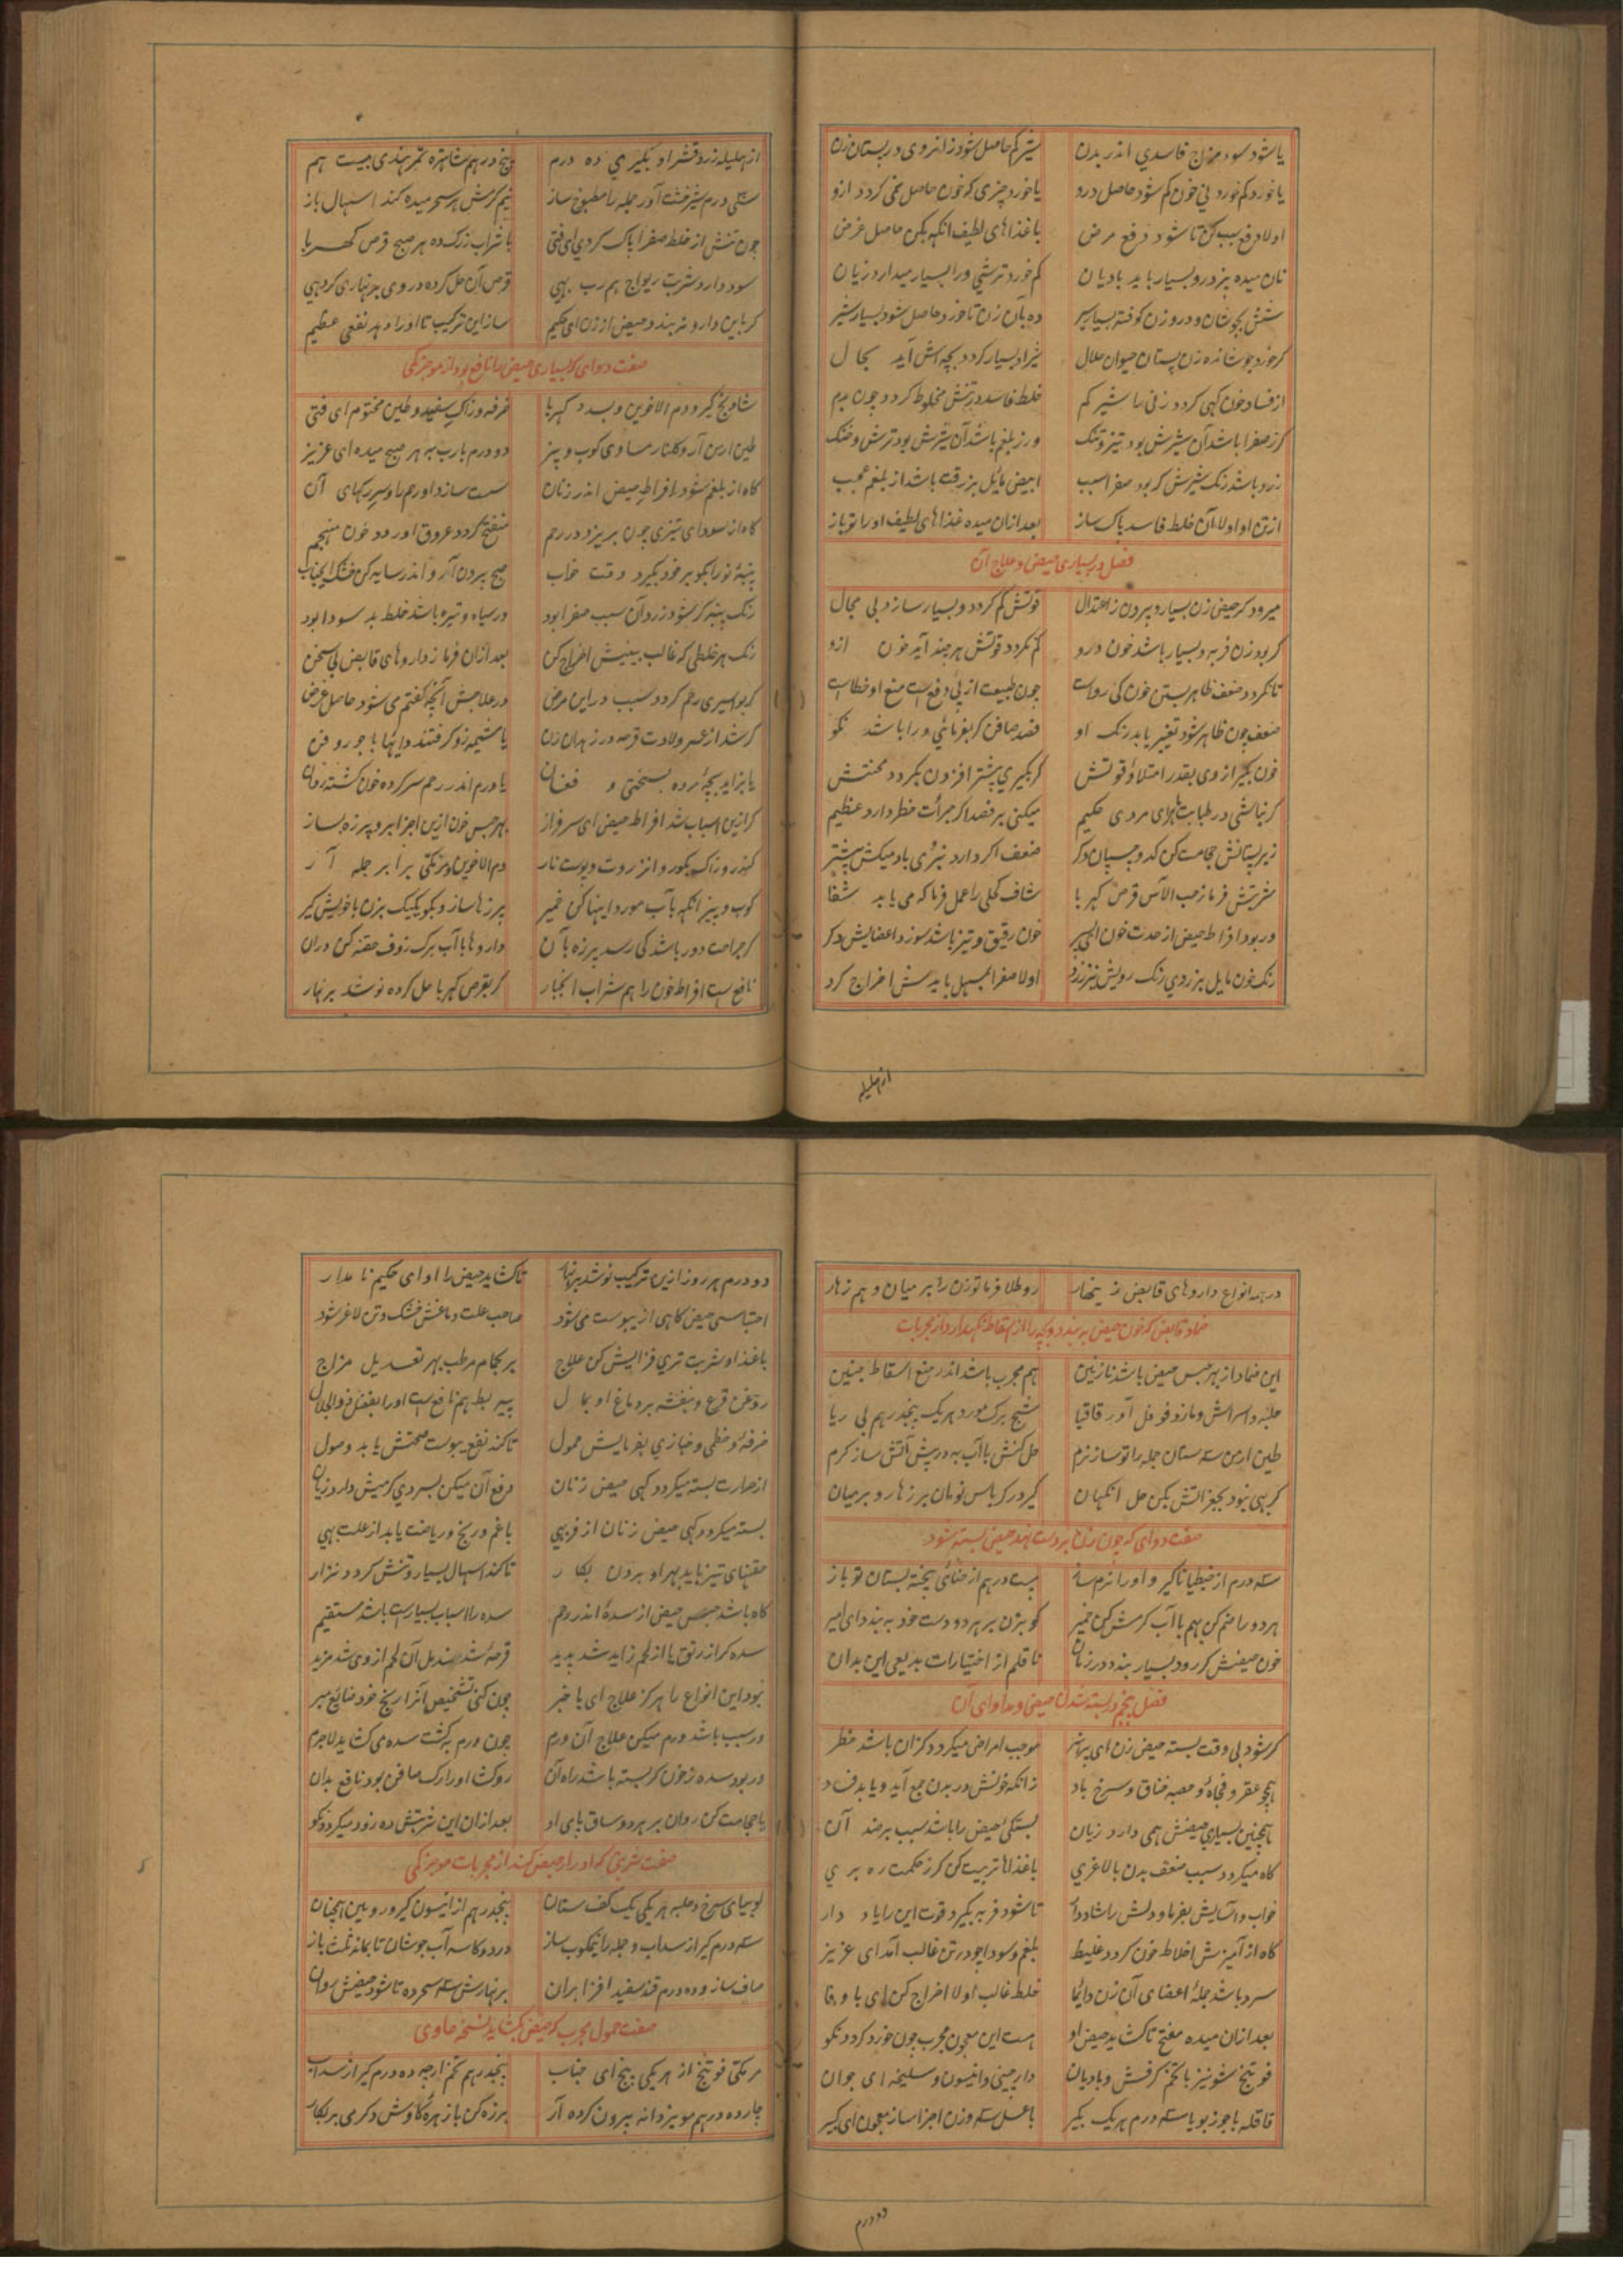 یا شود سوء مزاج فاسدی اندر بدن شیر کم حاصل شود ز انروی در پستان زن
یا خورد کم خورد نی خون کم شود حاصل درو یا خورد چیزی که خون حاصل نمی کردد ازو
اولا دفع سبب کن تا شود دفع مرض با غذاهای لطیف انکه بکن حاصل غرض
نان میده بز درو بسیار باید بادیان کم خورد ترشی ورا بسیار میدارد زیان
شش بجوشان و درو زن کوفته بسیار سیر ده بآن زن تا خورد حاصل شود بسیار شیر
کر خورد جوشانده زن پستان حیوان حلال شیر او بسیار کردد بچه اش آید بحال
از فساد خون کهی کردد زنی را شیر کم خلط فاسد در تنش مخلوط کردد چون بدم
کر ز صفرا باشد آن شیرش بود تیز و تنک ور ز بلغم باشد آن شیرش بود ترش و خنک
زرد باشد رنک شیرش کر بود صفرا سبب ابیض مایل بزرقت باشد از بلغم عجب
از تن او اولا آن خلط فاسد پاک ساز بعد ازان میده غذاهای لطیف او را تو باز
فصل در بسیاری حیض و علاج آن
میرود کر حیض زن بسیار و بیرون ز اعتدال قوتش کم کردد و بسیار سازد بی مجال
کر بود زن فربه و بسیار باشد خون درو کم نکردد قوتش هر چند آید خون ازو
تا نکردد ضعف ظاهر بستن خون کی رواست چون طبیعت از پی دفع است منع او خطاست
ضعف چون ظاهر شود تغییر یابد رنک او فصد صافن کر بفرمائی ورا باشد نکو
خون بکیر از وی بقدر امتلا و قوتش کر بکیری بیشتر افزون بکردد محنتش
کر نباشی در طبابت ای مردی حکیم میکنی بر فصد اکر جرأت خطر دارد عظیم
زیر پستانش حجامت کن کدو چسپان دکر ضعف اکر دارد بنرمی باد میکش بیشتر
شربتش فرما ز حب الآس قرص کهربا شاف کحلی را عمل فرما که می یابد شفا
ور بود افراط حیض از حدت خون ای پسر خون رقیق و تیز باشد سوزد اعضایش دکر
رنک خون مایل بزردی رنک رویش نیز زرد اولا صفرا بمسهل بایدش اخراج کرد
از هلیله
از هلیله زرد قشر او بکیری ده درم پنج درهم شاهتره تمر هندی بیست هم
سی درم شیرخشت آور جمله را مطبوخ ساز نیم کرمش هر سحر میده کند اسهال باز
چون تنش از خلط صفرا پاک کردی ای فتی با شراب زرک ده هر صبح قرص کهربا
سود دارد شربت ریواج هم رب بهی قرص آن حل کرده در وی بر نهاری کردهی
کر باین دارو نه بندد حیض از زن ای حکیم ساز این ترکیب تا او را دهد نفعی عظیم
صفت دوای که بسیاری حیض را نافع بود از موجز مکی
شادنج کیر و دم الاخوین و بسد کهربا خرفه و زاک سفید و طین مختوم ای فتی
طین ارمن آر و کلنار مساوی کوب و بیز دو درم با رب به هر صبح میده ای عزیز
کاه از بلغم شود افراط حیض اندر زنان سست سازد او رحم را و سر رکهای آن
کاه از سودای تیزی چون بریزد در رحم منفتح کردد عروق او رود خون منهجم
پنبهٔ نو را بکو بر خود بکیرد وقت خواب صبح بیرون آر و اندر سایه کن خشک ایجناب
رنک پنبه کر شود زرد آن سبب صفرا بود ور سیاه و تیره باشد خلط بد سودا بود
رنک هر خلطی که غالب بینیش اخراج کن بعد ازان فرما ز داروهای قابض بی سخن
کر بواسیری رحم کردد سبب در این مرض در علاجش آنچه کفتم می شود حاصل غرض
کر شد از عسر ولادت قرحه در زهدان زن یا مشیمه زو کرفتند دایها با جور و فن
یا بزاید بچهٔ مرده بسختی و فغان یا ورم اندر رحم سر کرده خون کشته روان
کر ازین اسباب شد افراط حیض ای سرفراز بهر حبس خون ازین اجزا برو پرزه بساز
کندر و زاک و بکور و انزروت و پوست نار دم الاخوین و مر مکی برابر جمله آر
کوب و بیز انکه بآب مورد اینها کن خمیر پرزها ساز و بکو یکیک بزن با خویش کیر
کر جراحت دور باشد کی رسد پرزه بآن داروها با آب برک زوف حقنه کن دران
نافع است افراط خون را هم شراب انجبار کر بقرص کهربا حل کرده نوشد بر نهار
در همه انواع داروهای قابض زینهار رو طلا فرما تو زن را بر میان و هم زهار
ضماد قابض که خون حیض به بندد و بچه را از اسقاط نکهدارد از مجربات
این ضماد از بهر حبس حیض باشد نازنین هم مجرب باشد اندر منع اسقاط جنین
حلبه و اسراش و مازو فوفل آور قاقیا شیح برک مورد هر یک پنجدرهم بی ریا
طین ارمن سته ستان جمله را تو ساز نرم حل کنش با آب به در پیش آتش ساز کرم
کر بهی نبود بجغراتش بکن حل انکهان کیر در کرباس نو مان بر زهار و بر میان
صفت دوای که چون زن بر دست نهد حیض بسته شود
سته درم از خبطیانا کیر و او را نرم ساز بیست درهم از حنای پخته بستان تو باز
هر دو را ضم کن بهم با آب کرمش کن خمیر کو بزن بر هر دو دست خود به بندد ای امیر
خون حیضش کر رود بسیار بندد در زمان ناقلم از اختیارات بدیعی این بدان
فصل پنجم در بسته شدن حیض و مداوای آن
کر شود بی وقت بسته حیض زن ای پر هنر موجب امراض میکردد کزان باشد خطر
همچو عقر و فجاه و حصبه خناق و سرخ باد زانکه خونش در بدن جمع آید و یابد فساد
همچنین بسیاری حیضش همی دارد زیان بستکی حیض را باشد سبب بر ضد آن
کاه میکردد سبب ضعف بدن با لاغری با غذاها تربیت کن کر ز حکمت ره بری
خواب و آسایش بفرما و دلش را شاد دار تا شود فربه بکیرد قوت این را یاد دار
کاه از آمیزش اخلاط خون کردد غلیظ بلغم و سودا چو در تن غالب آمد ای عزیز
سرد باشد جملهٔ اعضای آن زن دائما خلط غالب اولا اخراج کن ای با وفا
بعد ازان میده مفتح تا کشاید حیض او هست این معجون مجرب چون خورد کردد نکو
فوتنج شونیز با تخم کرفس و بادیان دارچینی و انیسون و سلیخه ای جوان
قاقله با جوز بویا سته درم هر یک بکیر با عسل سته وزن اجزا ساز معجون ای کبیر
دو درم
دو درم هر روز ازین ترکیب نوشد بر نهار تا کشاید حیض را او ای حکیم نامدار
احتباس حیض کاهی از یبوست می شود صاحب علت دماغش خشک و تن لاغر شود
با غذا و شربت تری فزایش کن علاج بر بحمام مرطب بهر تعدیل مزاج
روغن قرع و بنفشه بر دماغ او بمال پیه بط هم نافع است او را بفضل ذوالجلال
خرفه و خطمی و خبازی بفرمایش حمول تا کند نفع یبوست صحتش یابد وصول
از حرارت بسته میکردد کهی حیض زنان دفع آن میکن بسردی کرمیش دارد زیان
بسته میکردد کهی حیض زنان از فربهی با غم و رنج و ریاضت یابد از علت بهی
حقنهای تیز باید بهر او بردن بکار تا کند اسهال بسیار و تنش کردد نزار
کاه باشد حبس حیض از سدهٔ اندر رحم سده را اسباب بسیار است باشد مستقیم
سده کر از رتق یا از لحم زاید شد پدید قرحهٔ شد مندمل آن لحم از وی شد مزید
نبود این انواع را هرکز علاج ای با خبر چون کنی تشخیص آنرا رنج خود ضایع مبر
ور سبب باشد ورم میکن علاج آن ورم چون ورم به کشت سده می کشاید لاجرم
ور بود سده ز خون کر بسته باشد راه آن رو کشا او را رک صافن بود نافع بدان
یا حجامت کن روان بر هر دو ساق پای او بعد ازان این شربتش ده زود میکردد نکو
صفت شربتی که ادرار حیض کند از مجربات موجز مکی
لوبیای سرخ و حلبه هر یکی یک کف ستان پنجدرهم از انیسون کیر و روبین همچنان
سته درم کیر از سداب و جمله را نیمکوب ساز در دو کاسه آب جوشان تا بماند ثلث باز
صاف ساز و ده درم قند سفید افزا بران بر نهارش سته سحر ده تا شود حیضش روان
صفت حمول مجرب که حیض کشاید نسخه حاوی
مر مکی فوتنج از هر یکی پنج ای جناب پنجدرهم تخم ازجیه ده درم کیر از سداب
چارده درهم مویز دانه بیرون کرده آر پرزه کن با زهرهٔ کاوش دکر می بر بکار